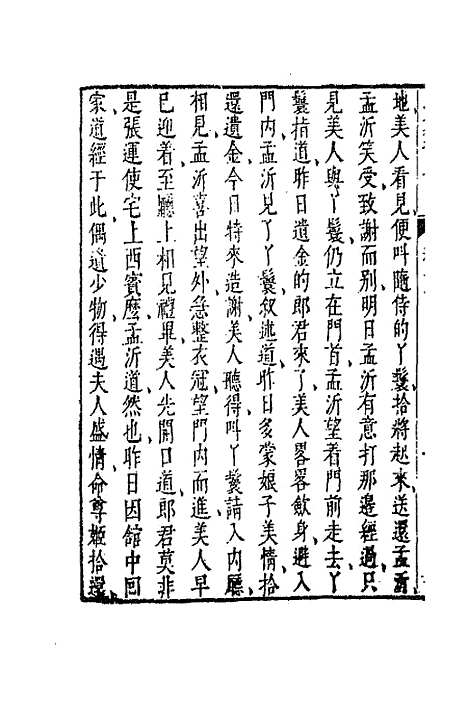 地美人看見便呌隨侍的丫鬟拾將起來送還孟沂
孟沂笑受致謝而别明日孟沂有意打那邊經過只
見美人與丫鬟仍立在門首孟沂望着門前走去丫
鬟指道昨日遺金的郎君來了美人畧畧歛身避入
門内孟沂見了丫鬟叙述道昨日多蒙娘子美情拾
還遺金今日特來造謝美人聽得呌丫鬟請入内廳
相見孟沂喜出望外急整衣冠望門内而進美人早
已迎着至廳上相見禮畢美人先開口道郎君莫非
是張運使宅上西賓麽孟沂道然也昨日因館中回
家道經于此偶遺少物得遇夫人盛情命尊姬拾還